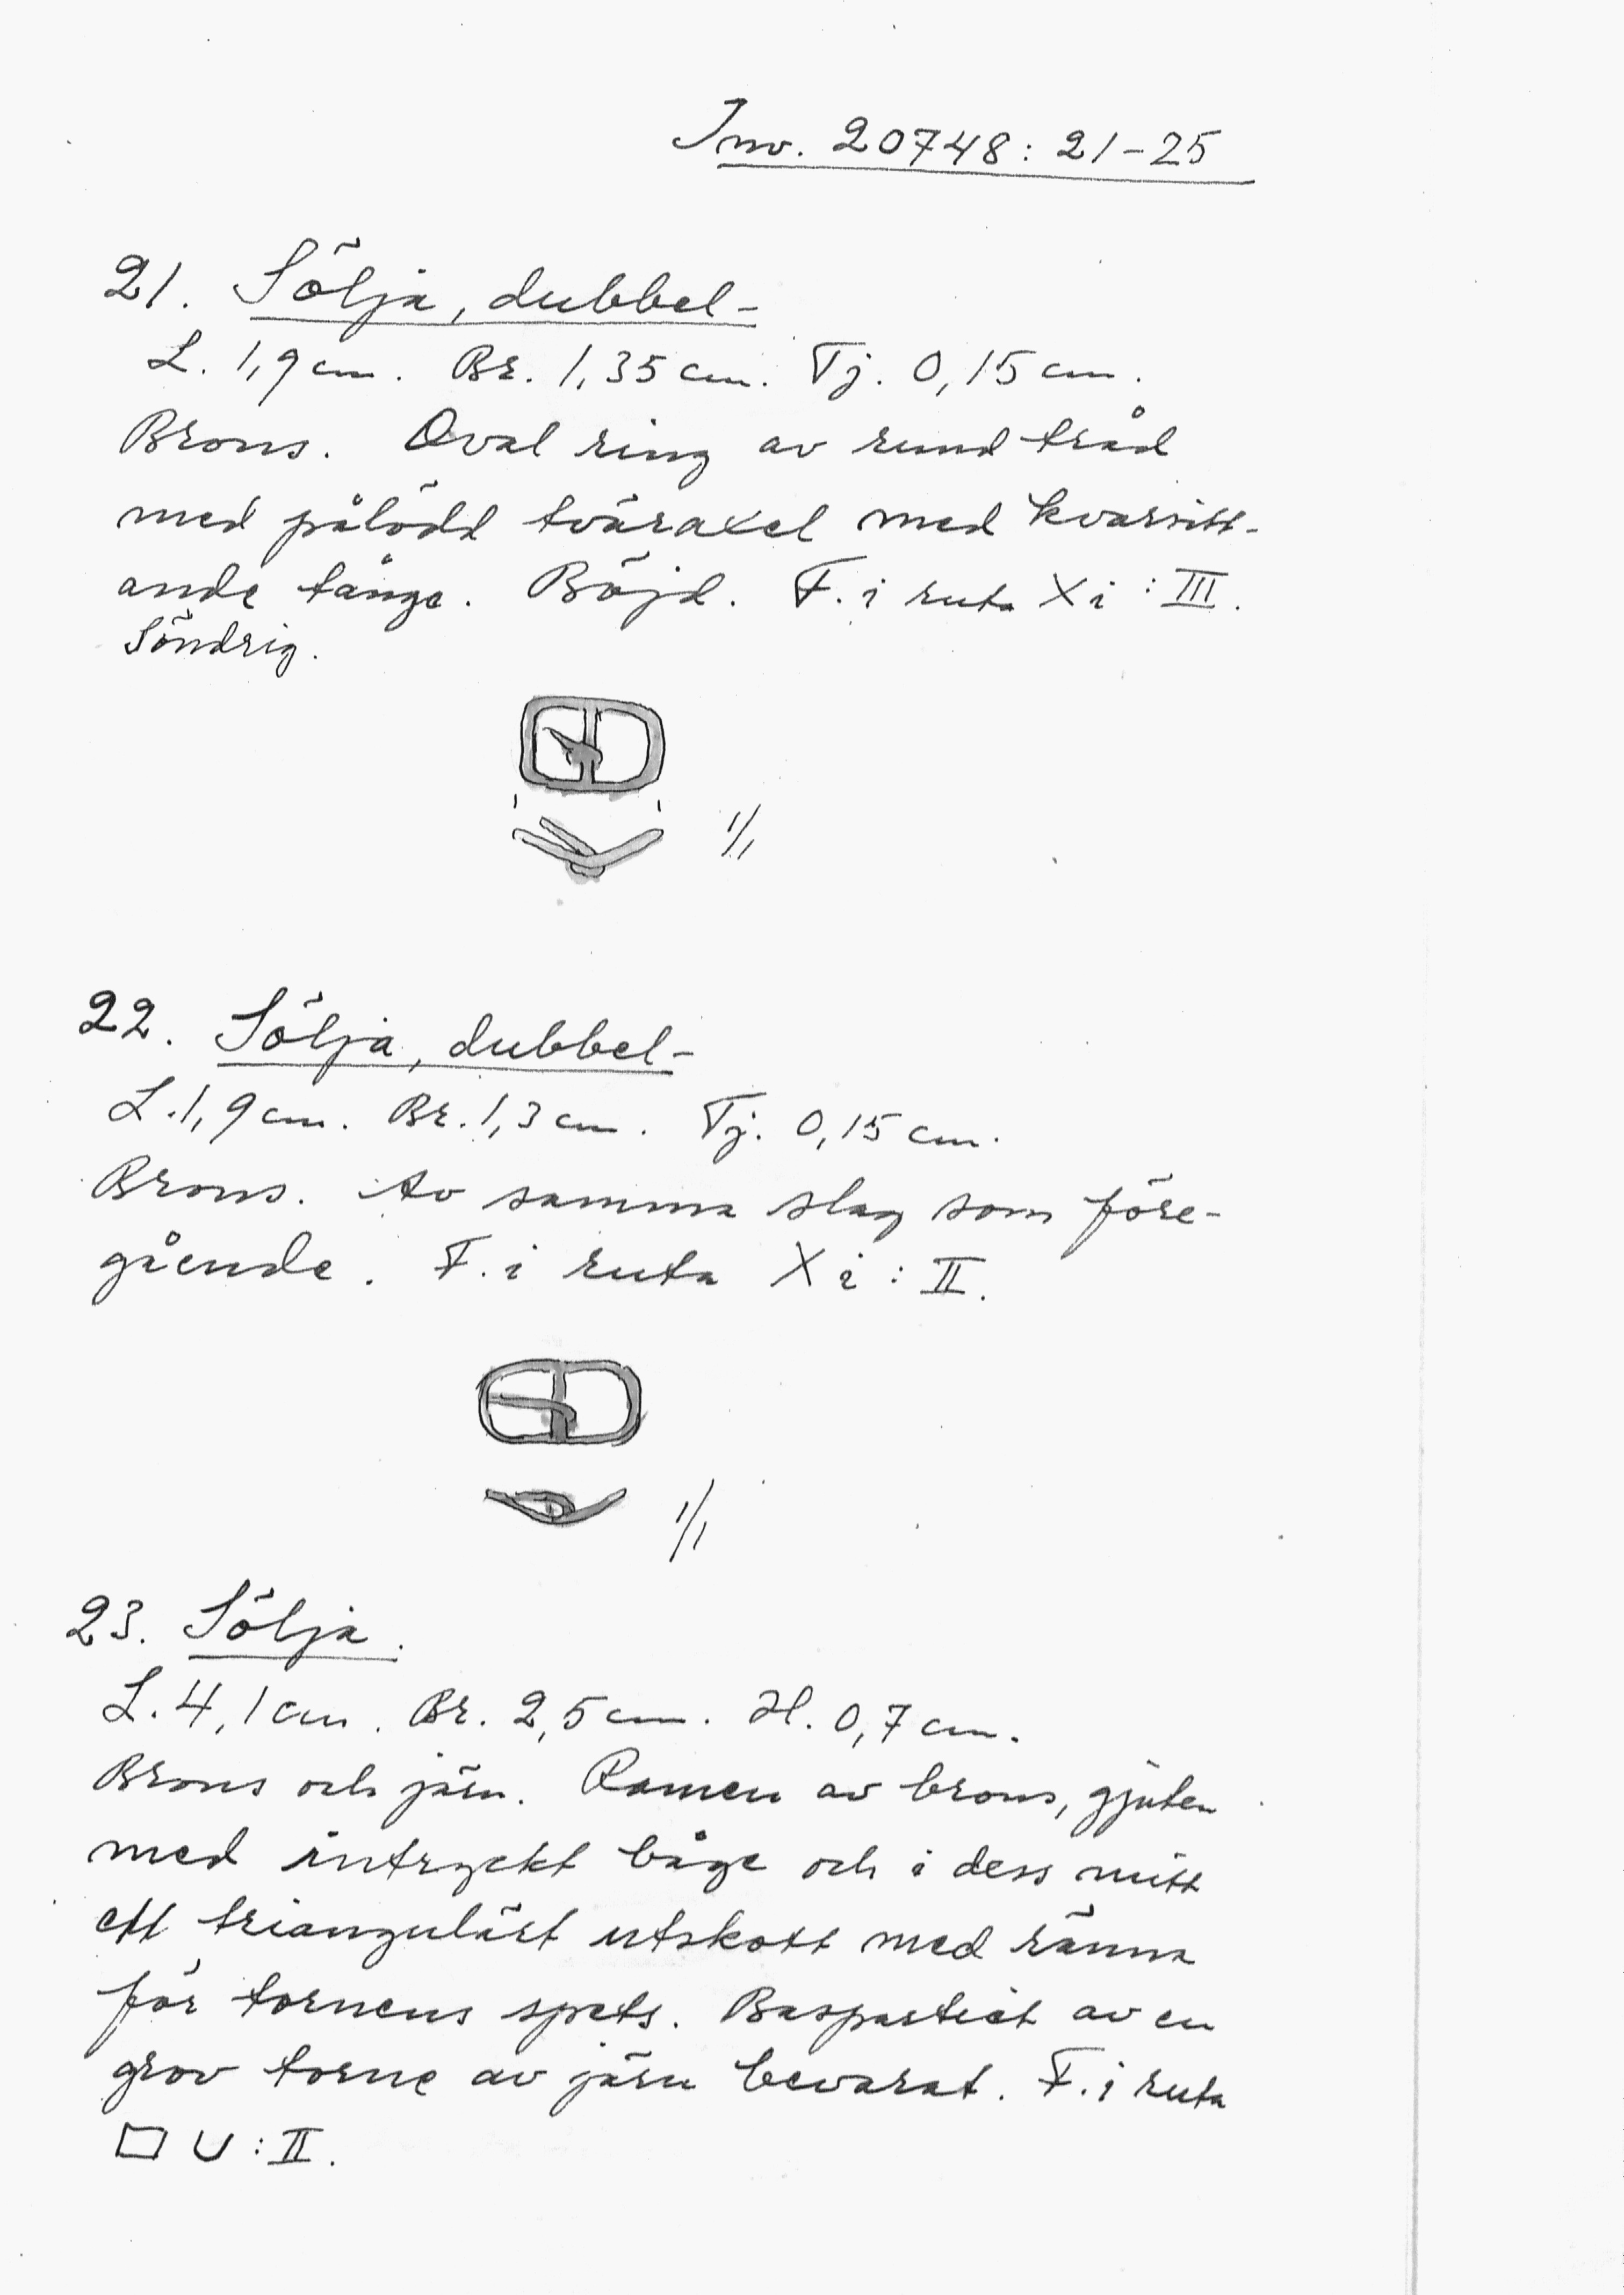 Inv. 20748: 21-25
21. Sölja, dubbel-
L. 1,9 cm. Br. 1,35 cm. Tj. 0,15 cm.
Brons. Oval ring av rund tråd
med pålödd tväraxel med kvarsitt-
ande tånge. Böjd. F. i ruta Xi : III.
Söndrig.
1/1
22. Sölja, dubbel-
L. 1,9 cm. Br. 1,3 cm. Tj. 0,15 cm.
Brons. Av samma slag som före-
gående. F. i ruta Xi : II.
1/1
23. Sölja.
L. 4,1 cm. Br. 2,5 cm. H. 0,7 cm.
Brons och järn. Ramen av brons, gjuten
med intryckt båge och i dess mitt
ett triangulärt utskott med ränna
för tornens spets. Baspartiet av en
grov torne av järn bevarat. F. i ruta
□ U : II.